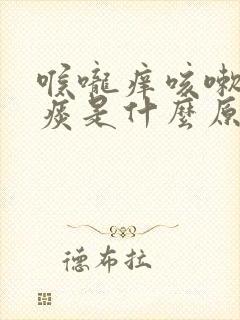 喉嚨痒咳嗽
痰是什麼原
德布拉